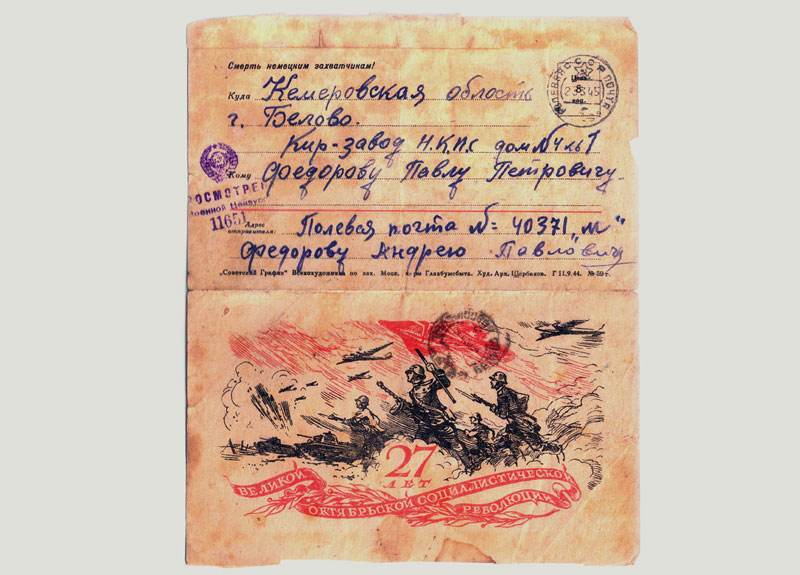 Смерть немецким захватчинам!
Куда Кемеровская область
г. Белово.
Кир-завод Н.К.П.С дом №4 кв 1
Кому Федорову Павлу Петровичу
ПРОСМОТРЕНО
Военной Цензурой
11651
Адрес отправителя: Полевая почта №= 40371 „М"
Федорову Андрею Павловичу
„Советский График" Всекохудожника по зак. Моск. к-ры Главбумсбыта. Худ. Арк. Щербаков. Г 11.9.44. № 59-г.
27
ЛЕТ
ВЕЛИКОЙ
ОКТЯБРЬСКОЙ СОЦИАЛИСТИЧЕСКОЙ
РЕВОЛЮЦИИ